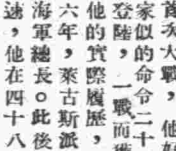 首次大戰，他好
家似的命令二十
登陸，一戰而獲
他的實際履歷，
六年，萊古斯派
海軍總長。此後
速，他在四十八